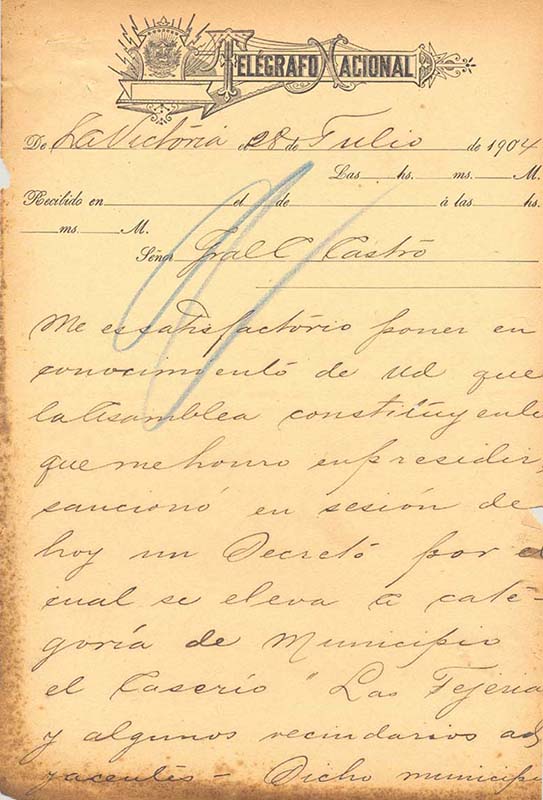 TELÉGRAFO NACIONAL
De La Victoria el 28 de Julio de 1904
Las hs. ms. M.
Recibido en el de á las hs.
ms. M.
Señor Gral C Castro
Me es satisfactorio poner en
conocimiento de Ud que
la Asamblea constituyente
que me honro en presidir,
sancionó en sesión de
hoy un Decreto por el
cual se eleva a cate-
goría de Municipio
el Caserío "Las Tejerías
y algunos vecindarios ad
yacentes - Dicho municipi